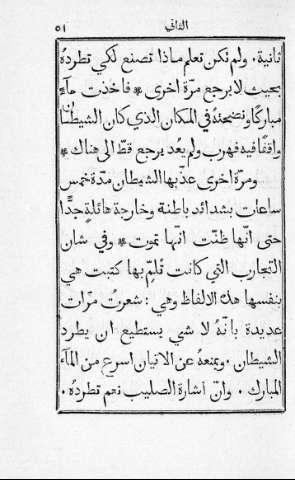 الثاني ٥١
ثانية. ولم تكن تعلم ماذا تصنع لكي تطرده
بحيث لا يرجع مرّة اخرى * فاخذت مآء
مباركًا ونضحتهُ في المكان الذي كان الشيطان
واقفًا فيه فهرب ولم يعد يرجع قطّ الى هناك *
ومرّة اخرى عذبها الشيطان مدّة خمس
ساعات بشدائد باطنة وخارجة هائلةٍ جدًّا
حتى انّها ظنّت انّها تموت * وفي شان
التجارب التي كانت تُلِمّ بها كتبت هي
بنفسها هذه الالفاظ وهي: شعرتُ مرّات
عديدة بانّهُ لا شي يستطيع ان يطرد
الشيطان. ويمنعهُ عن الاتيان اسرع من المآء
المبارك. وانّ اشارة الصليب نعم تطرده.